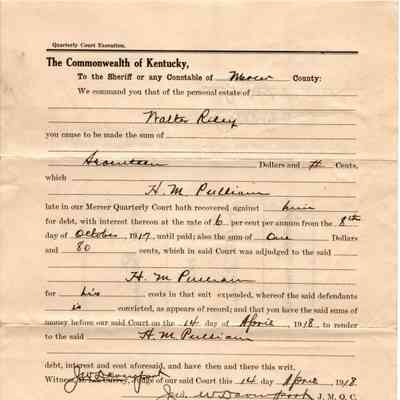 Quarterly Court Execution.
The Commonwealth of Kentucky,
To the Sheriff or any Constable of Mercer County:
We command you that of the personal estate of
Walter Riley
you cause to be made the sum of
Seventeen Dollars and Cents,
which
H. M. Pulliam
late in our Mercer Quarterly Court hath recovered against him
for debt, with interest thereon at the rate of 6 per cent per annum from the 8th
day of October, 1917, until paid; also the sum of One Dollars
and 80 cents, which in said Court was adjudged to the said
H. M. Pulliam
for his costs in that suit expended, whereof the said defendants
is convicted, as appears of record; and that you have the said sums of
money before our said Court on the 14 day of April, 1918, to render
to the said H. M. Pulliam
debt, interest and cost aforesaid, and have then and there this writ.
Witness, J W Davenport Judge of our said Court this 14 day April, 1918
Jno. W Davenport J. M. Q. C.